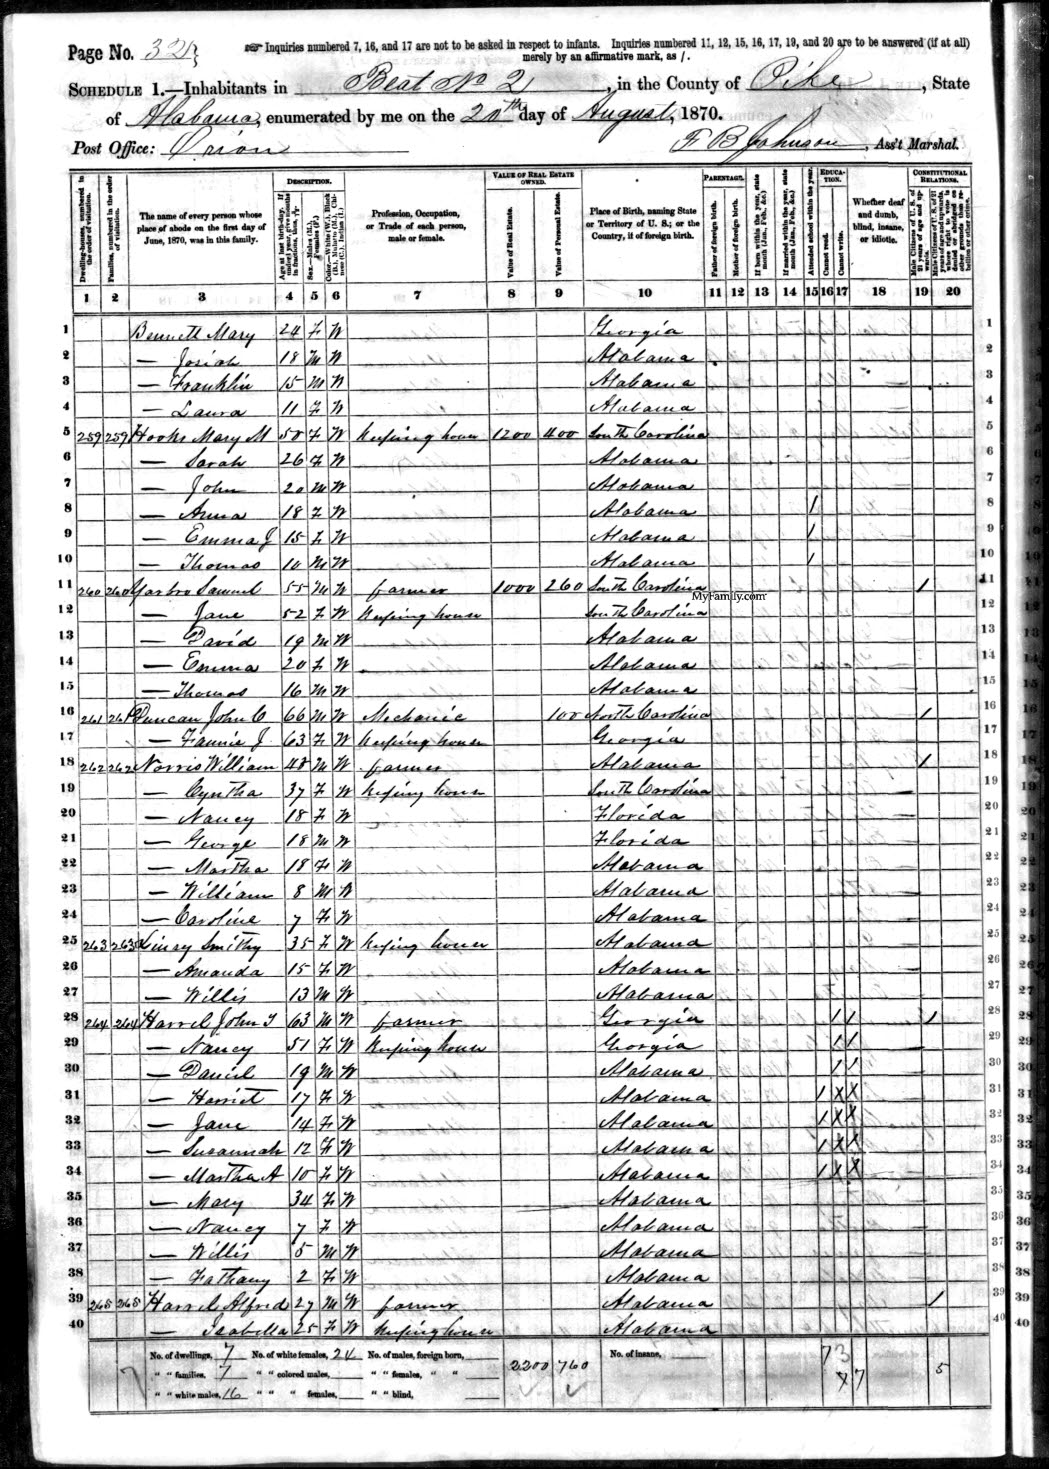 Page No. 323
☞ Inquiries numbered 7, 16, and 17 are not to be asked in respect to infants. Inquiries numbered 11, 12, 15, 16, 17, 19, and 20 are to be answered (if at all) merely by an affirmative mark, as /.
Schedule 1.—Inhabitants in Beat No 2, in the County of Pike, State
of Alabama, enumerated by me on the 20th day of August, 1870.
Post Office: Orion F B Johnson, Ass't Marshal.
Dwelling-houses, numbered in the order of visitation.
Families, numbered in the order of visitation.
The name of every person whose place of abode on the first day of June, 1870, was in this family.
Description.
Age at last birth-day. If under 1 year, give months in fractions, thus 3/12
Sex.—Males (M.), Females (F.)
Color.—White (W.), Black (B.), Mulatto (M.), Chinese (C.), Indian (I.)
Profession, Occupation, or Trade of each person, male or female.
Value of Real Estate owned.
Value of Real Estate.
Value of Personal Estate.
Place of Birth, naming State or Territory of U. S.; or the Country, if of foreign birth.
Parentage.
Father of foreign birth.
Mother of foreign birth.
If born within the year, state month (Jan., Feb., &c.)
If married within the year, state month (Jan., Feb., &c.)
Attended school within the year.
Education.
Cannot read.
Cannot write.
Whether deaf and dumb, blind, insane, or idiotic.
Constitutional Relations.
Male Citizens of U. S. of 21 years of age and upwards.
Male Citizens of U. S. of 21 years of age and upwards, where right to vote is denied or abridged on other grounds than rebellion or other crime.
1 2 3 4 5 6 7 8 9 10 11 12 13 14 15 16 17 18 19 20
1 Bennett Mary 24 F W Georgia 1
2 — Josiah 18 M W Alabama 2
3 — Franklin 15 M W Alabama 3
4 — Laura 11 F W Alabama 4
5 259 259 Hooks Mary M 50 F W Keeping house 1200 400 South Carolina 5
6 — Sarah 26 F W Alabama 6
7 — John 20 M W Alabama 7
8 — Anna 18 F W Alabama 1 8
9 — Emma J 15 F W Alabama 1 9
10 — Thomas 10 M W Alabama 1 10
11 260 260 Yarbro Samuel 55 M W farmer 1000 260 South Carolina 1 11
MyFamily.com
12 — Jane 52 F W Keeping house South Carolina 12
13 — David 19 M W Alabama 13
14 — Emma 20 F W Alabama 14
15 — Thomas 16 M W Alabama 15
16 261 261 Duncan John C 66 M W Mechanic 100 North Carolina 1 16
17 — Fannie J. 63 F W Keeping house Georgia 17
18 262 262 Norris William 48 M W farmer Alabama 1 18
19 — Cyntha 37 F W Keeping house South Carolina 19
20 — Nancy 18 F W Florida 20
21 — George 18 M W Florida 21
22 — Martha 18 F W Alabama 22
23 — William 8 M W Alabama 23
24 — Caroline 7 F W Alabama 24
25 263 263 Smithy 35 F W Keeping house Alabama 25
26 — Amanda 15 F W Alabama 26
27 — Willis 13 M W Alabama 27
28 264 264 Harrel John T 63 M W farmer Georgia 1 1 1 28
29 — Nancy 51 F W Keeping house Georgia 1 1 29
30 — Daniel 19 M W Alabama 1 1 30
31 — Harriet 17 F W Alabama 1 X X 31
32 — Jane 14 F W Alabama 1 X X 32
33 — Susannah 12 F W Alabama 1 X X 33
34 — Martha A 10 F W Alabama 1 X X 34
35 — Mary 34 F W Alabama 35
36 — Nancy 7 F W Alabama 36
37 — Willis 5 M W Alabama 37
38 — Fathany 2 F W Alabama 38
39 265 265 Harrel Alfred 27 M W farmer Alabama 1 39
40 — Isabella 25 F W Keeping house Alabama 40
No. of dwellings, 7 No. of white females, 24 No. of males, foreign born, 2200 760 No. of insane, 7 3
" " families, 7 " " colored males, " " females, " " 7 7 5
" " white males, 16 " " " females, " " blind,